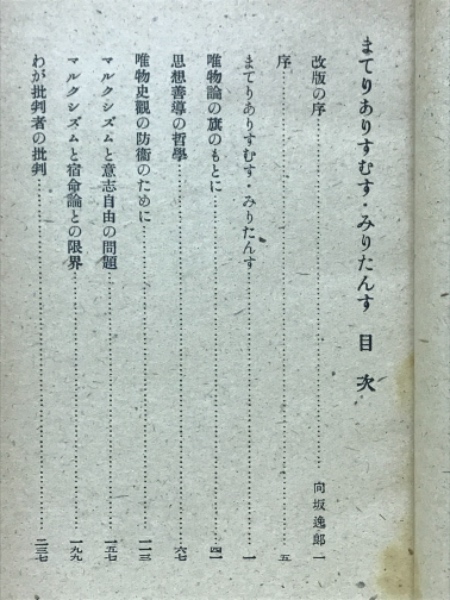 まてりありすむす・みりたんす 目次
改版の序……………………向坂逸郎 一
序……………………五
まてりありすむす・みりたんす……………………一
唯物論の旗のもとに……………………四一
思想善導の哲學……………………六七
唯物史觀の防衞のために……………………一一三
マルクシズムと意志自由の問題……………………一五七
マルクシズムと宿命論との限界……………………一九九
わが批判者の批判……………………二三七